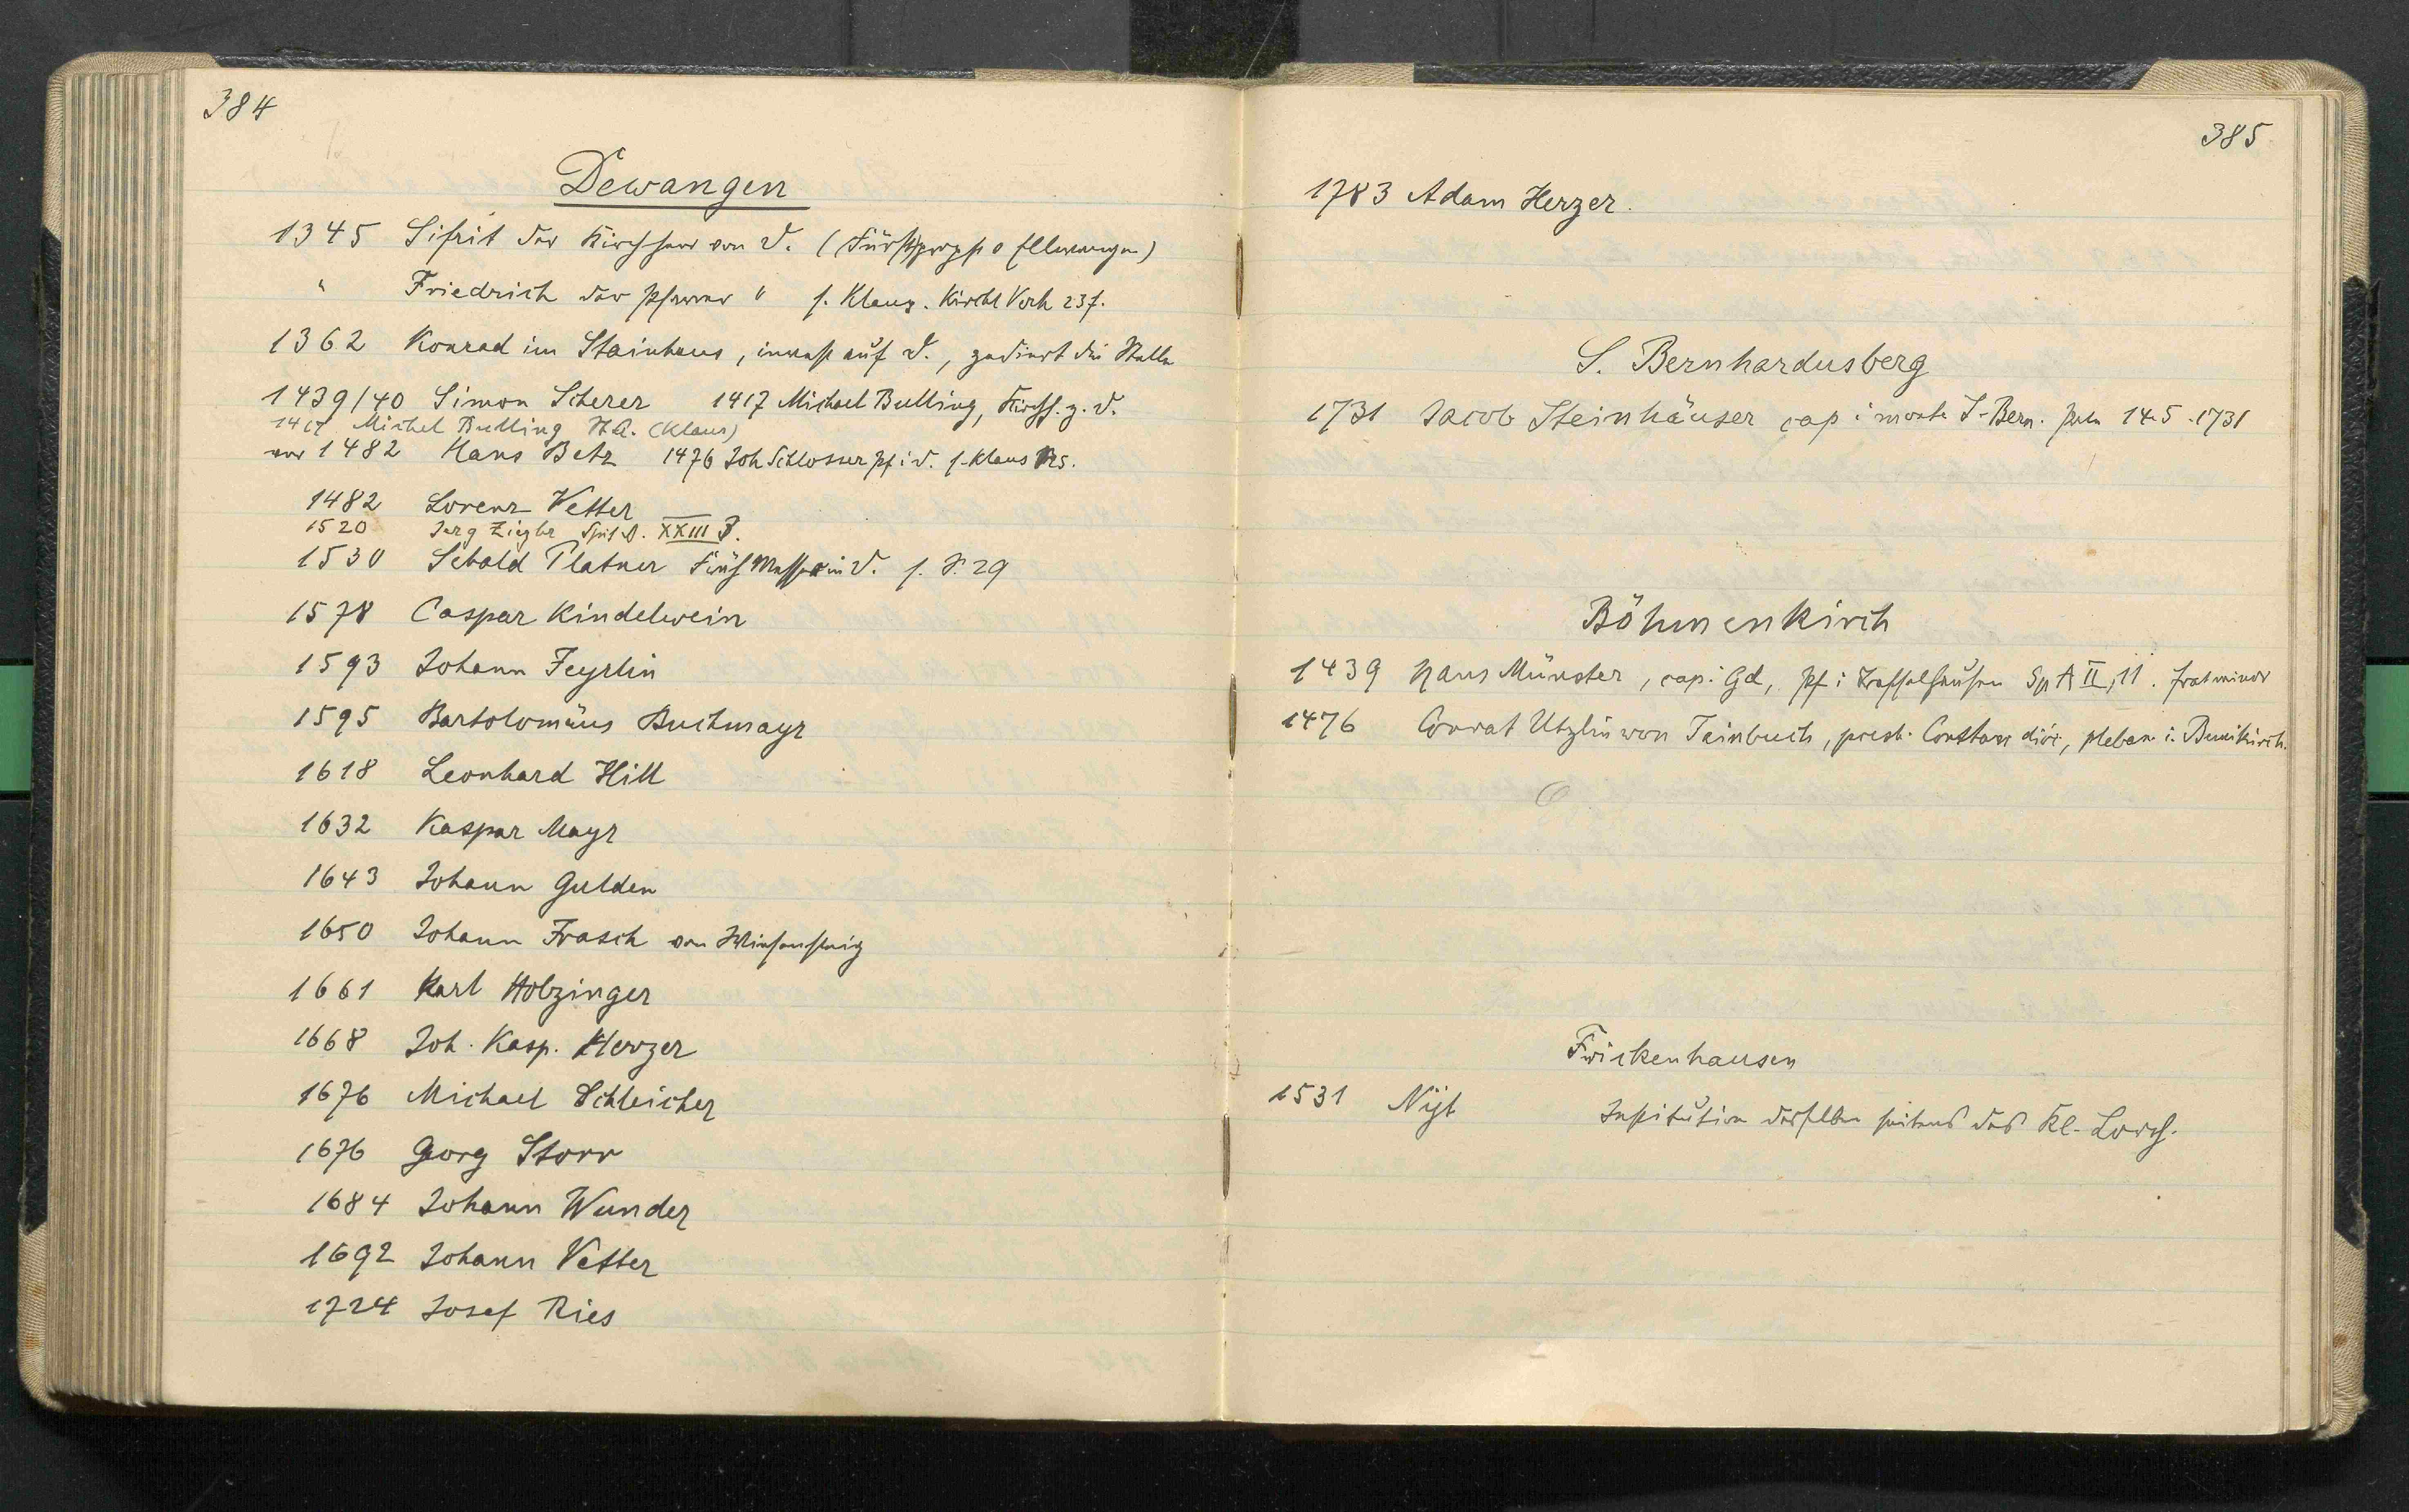 384
Dewangen
1345 Sifrit der Kirchherr von D. (Fürstpropst Ellwangen)
" Friedrich der Pfarrer " s. Klaus. Kirchl Verh 23f.
1362 Konrad im Stainhaus, auf D., die Stelle
1439/40 Simon Scherer 1417 Michael Bulling, Kirchh. z. D.
1417 Michel Bulling (Klaus)
vor 1482 Hans Betz 1476 Joh Schlosser Pf i D. s. Klaus
1482 Lorenz Vetter
1520 Jerg Ziegler XXIII 3.
1530 Sebald Platner in D. s. S. 29
1578 Caspar Kindelwein
1593 Johann Feyrlin
1595 Bartolomäus Buchmayr
1618 Leonhard Hill
1632 Kaspar Mayr
1643 Johann Gulden
1650 Johann Frasch von Wiesensteig
1661 Karl Holzinger
1668 Joh. Kasp. Herzer
1676 Michael Schleicher
1676 Georg Storr
1684 Johann Wunder
1692 Johann Vetter
1724 Josef Ries
385
1783 Adam Herzer.
S. Bernhardusberg
1731 Jacob Steinhäuser cap i monte S. Bern. 14.5.1731
Böhmenkirch
1439 Hans Münster, cap. i. Gd, Pf i Sp A II, 11.
1476 Conrat Utzlin von Tainbuch, presb. Constan dioc, pleban i. Bemikirch.
Frickenhausen
1531 Institution desselben seitens des Kl. Lorch.